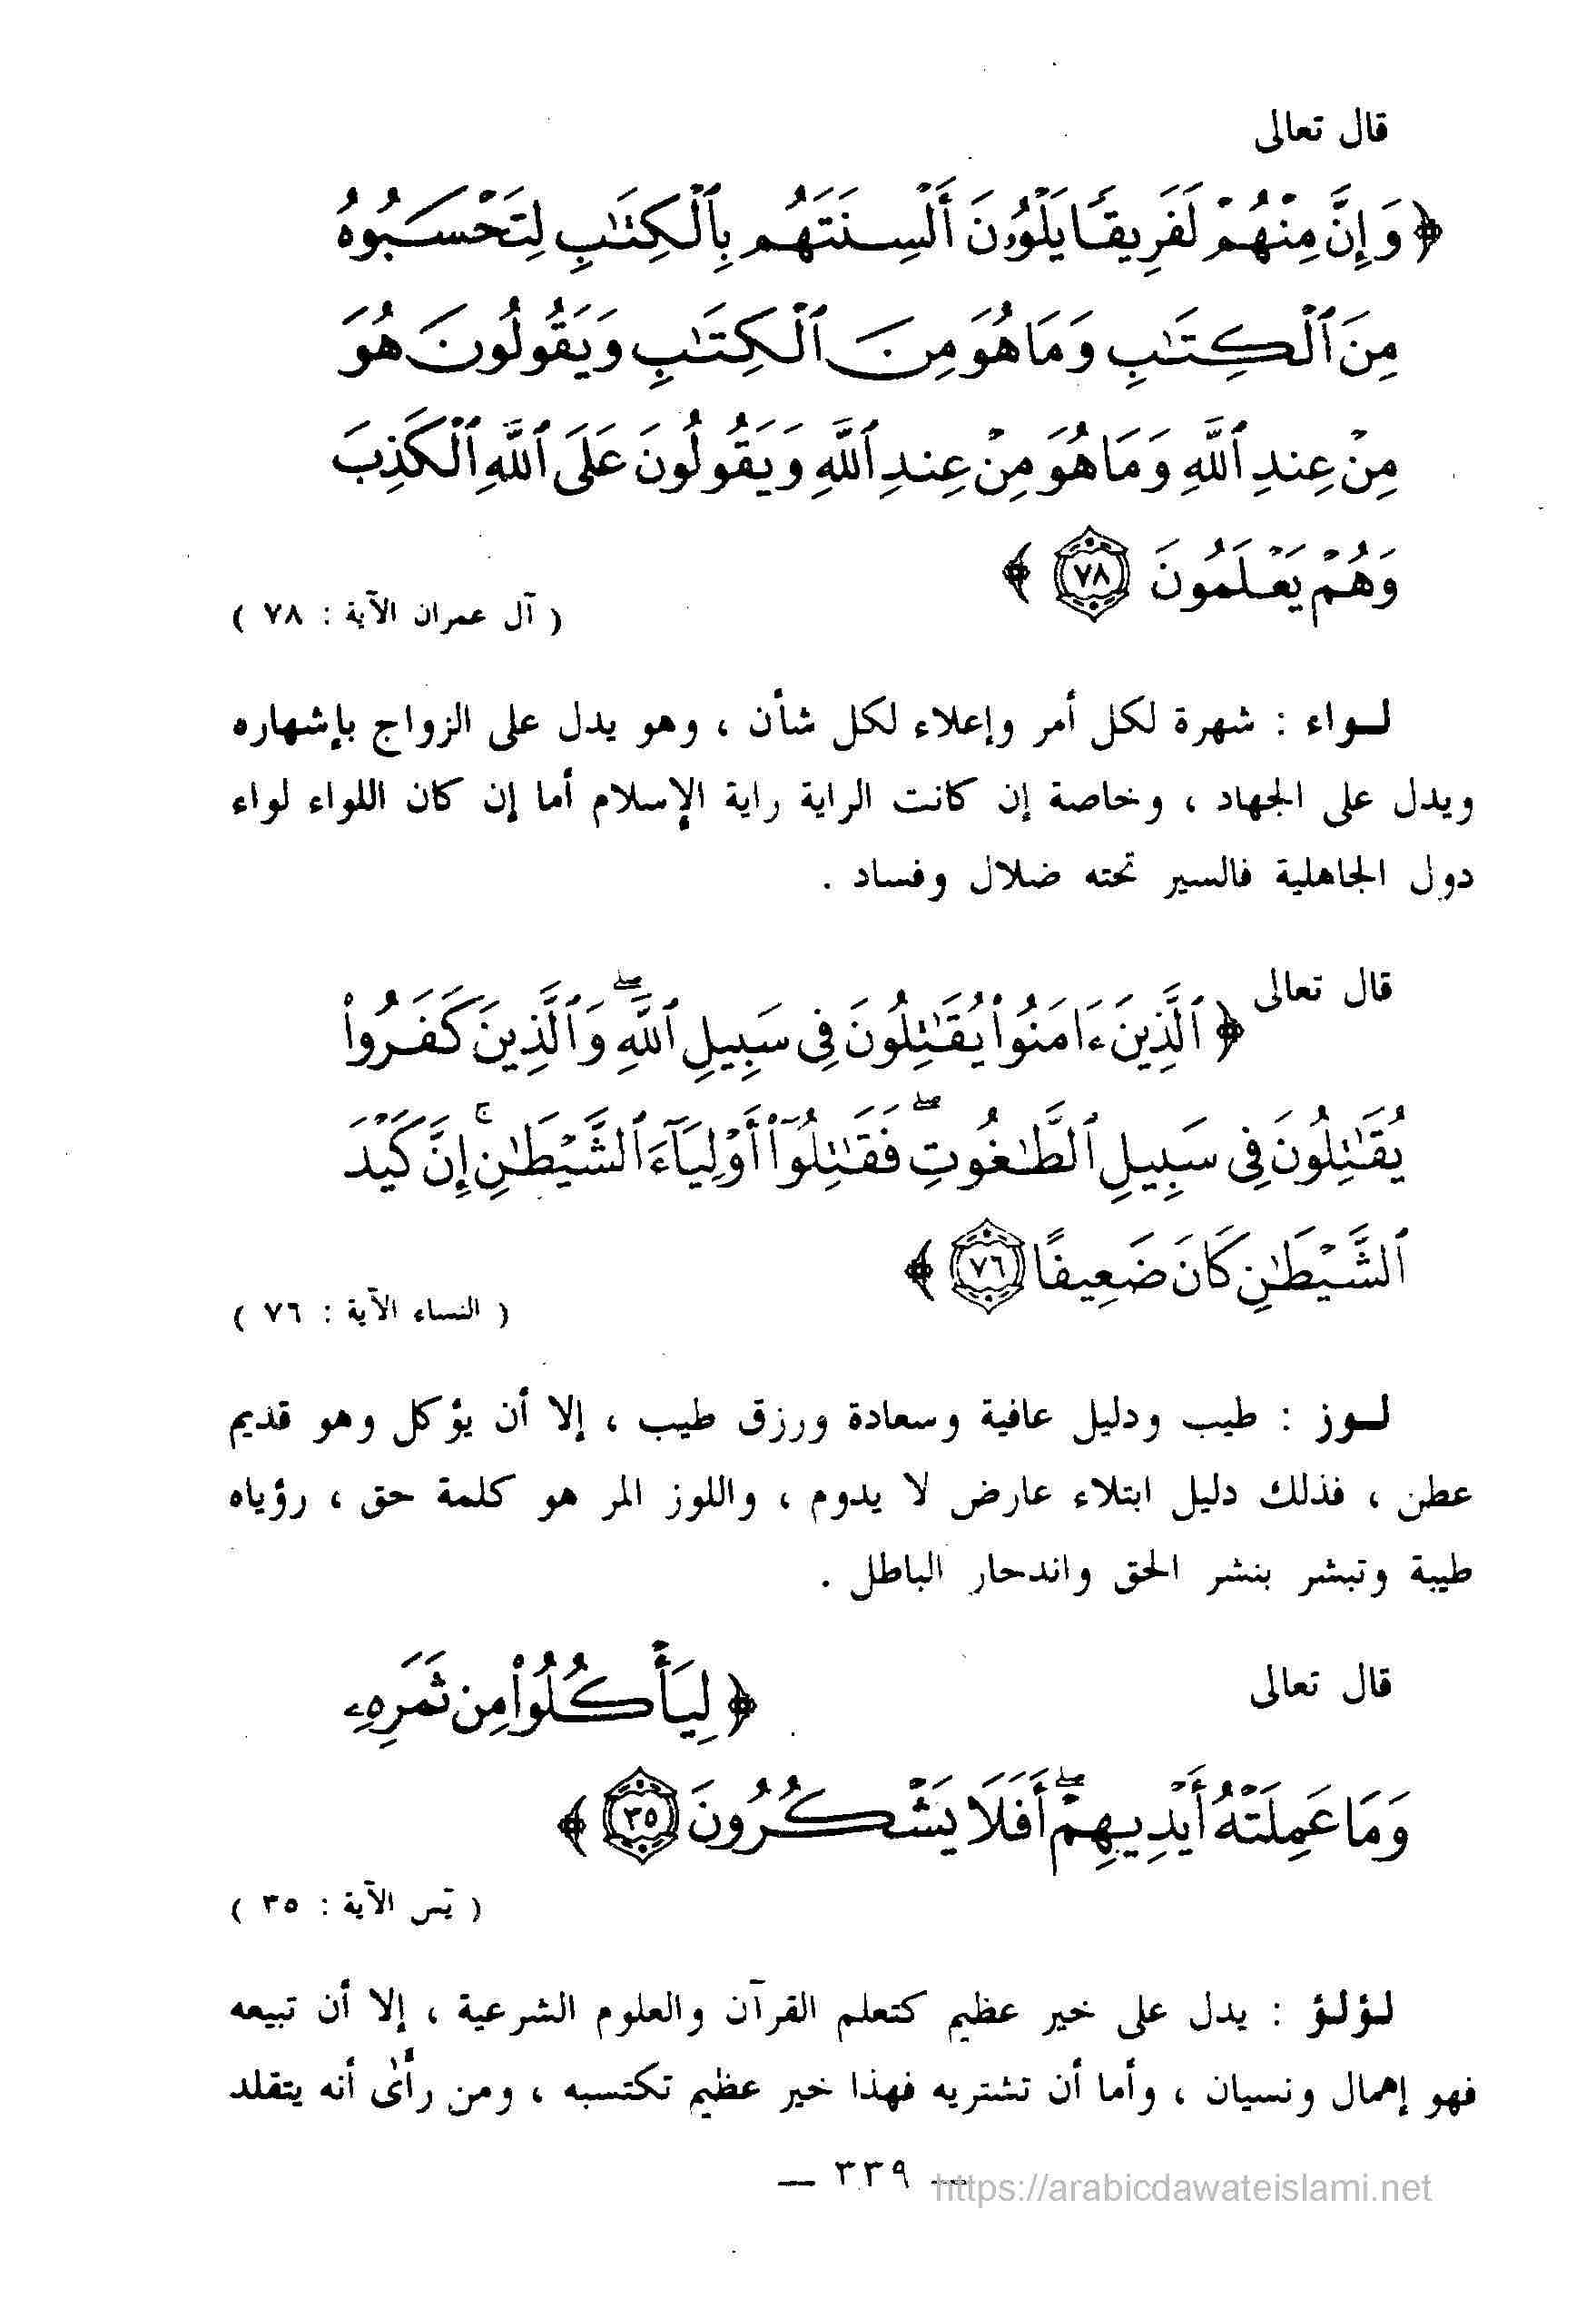 قال تعالى
﴿ وَإِنَّ مِنْهُمْ لَفَرِيقًا يَلْوُۥنَ أَلْسِنَتَهُم بِٱلْكِتَٰبِ لِتَحْسَبُوهُ
مِنَ ٱلْكِتَٰبِ وَمَا هُوَ مِنَ ٱلْكِتَٰبِ وَيَقُولُونَ هُوَ
مِنْ عِندِ ٱللَّهِ وَمَا هُوَ مِنْ عِندِ ٱللَّهِ وَيَقُولُونَ عَلَى ٱللَّهِ ٱلْكَذِبَ
وَهُمْ يَعْلَمُونَ ٧٨ ﴾
( آل عمران الآية : ٧٨ )
لـواء : شهرة لكل أمر وإعلاء لكل شأن ، وهو يدل على الزواج بإشهاره
ويدل على الجهاد ، وخاصة إن كانت الراية راية الإسلام أما إن كان اللواء لواء
دول الجاهلية فالسير تحته ضلال وفساد .
قال تعالى
﴿ ٱلَّذِينَ ءَامَنُوا۟ يُقَٰتِلُونَ فِى سَبِيلِ ٱللَّهِۖ وَٱلَّذِينَ كَفَرُوا۟
يُقَٰتِلُونَ فِى سَبِيلِ ٱلطَّٰغُوتِۖ فَقَٰتِلُوٓا۟ أَوْلِيَآءَ ٱلشَّيْطَٰنِۚ إِنَّ كَيْدَ
ٱلشَّيْطَٰنِ كَانَ ضَعِيفًا ٧٦ ﴾
( النساء الآية : ٧٦ )
لـوز : طيب ودليل عافية وسعادة ورزق طيب ، إلا أن يؤكل وهو قديم
عطن ، فذلك دليل ابتلاء عارض لا يدوم ، واللوز المر هو كلمة حق ، رؤياه
طيبة وتبشر بنشر الحق واندحار الباطل .
قال تعالى
﴿ لِيَأْكُلُوا۟ مِن ثَمَرِهِۦ
وَمَا عَمِلَتْهُ أَيْدِيهِمْۖ أَفَلَا يَشْكُرُونَ ٣٥ ﴾
( يٓس الآية : ٣٥ )
لـؤلـؤ : يدل على خير عظيم كتعلم القرآن والعلوم الشرعية ، إلا أن تبيعه
فهو إهمال ونسيان ، وأما أن تشتريه فهذا خير عظيم تكتسبه ، ومن رأى أنه يتقلد
— ٣٣٩ —
https://arabicdawateislami.net